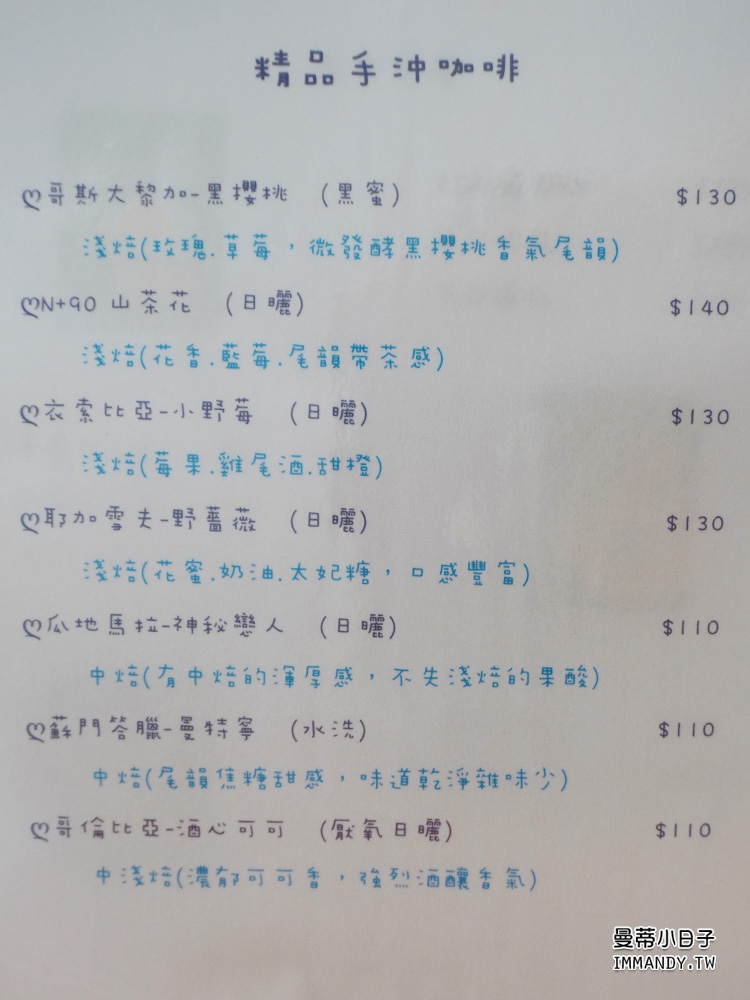 精品手沖咖啡
ღ哥斯大黎加-黑櫻桃 (黑蜜) $130
淺焙(玫瑰.草莓，微發酵黑櫻桃香氣尾韻)
ღN+90 山茶花 (日曬) $140
淺焙(花香.藍莓.尾韻帶茶感)
ღ衣索比亞-小野莓 (日曬) $130
淺焙(莓果.雞尾酒.甜橙)
ღ耶加雪夫-野薔薇 (日曬) $130
淺焙(花蜜.奶油.太妃糖，口感豐富)
ღ瓜地馬拉-神秘戀人 (日曬) $110
中焙(有中焙的渾厚感，不失淺焙的果酸)
ღ蘇門答臘-曼特寧 (水洗) $110
中焙(尾韻焦糖甜感，味道乾淨雜味少)
ღ哥倫比亞-酒心可可 (厭氧日曬) $110
中淺焙(濃郁可可香，強烈酒釀香氣)
曼蒂小日子
IMMANDY.TW